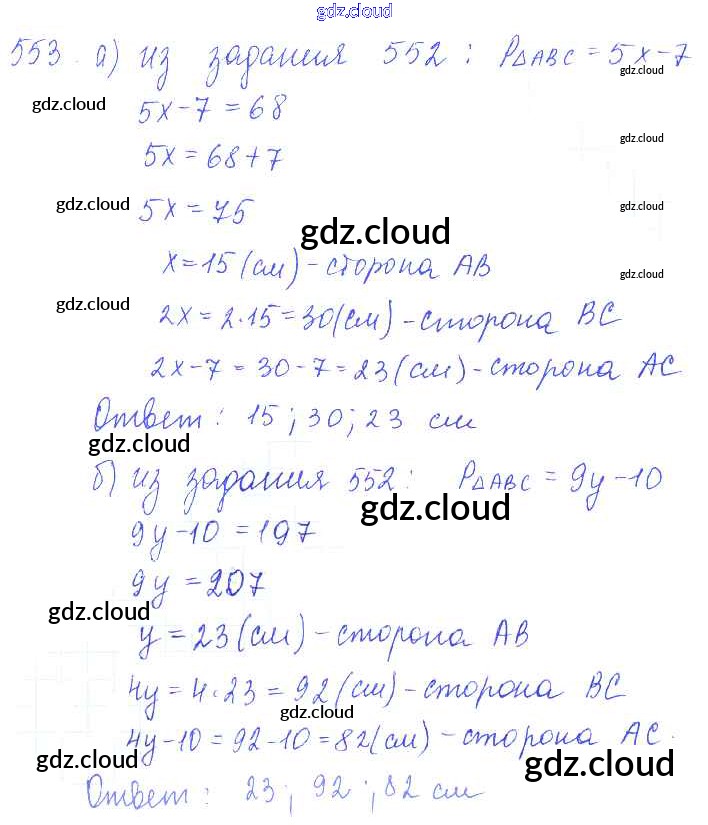 gdz.cloud
553. а) из задания 552: P△ABC = 5x-7
gdz.cloud
gdz.cloud 5x-7=68
gdz.cloud
5x=68+7
gdz.cloud 5x=75 gdz.cloud
gdz.cloud
x=15(см)-сторона AB
gdz.cloud
gdz.cloud 2x=2·15=30(см)-сторона BC
2x-7=30-7=23(см)-сторона AC
Ответ: 15; 30; 23 см
gdz.cloud
б) из задания 552: P△ABC = 9y-10
gdz.cloud
9y-10=197
9y=207
gdz.cloud
y=23(см)-сторона AB
4y=4·23=92(см)-сторона BC
gdz.cloud
4y-10=92-10=82(см)-сторона AC.
gdz.cloud gdz.cloud
Ответ: 23; 92; 82 см